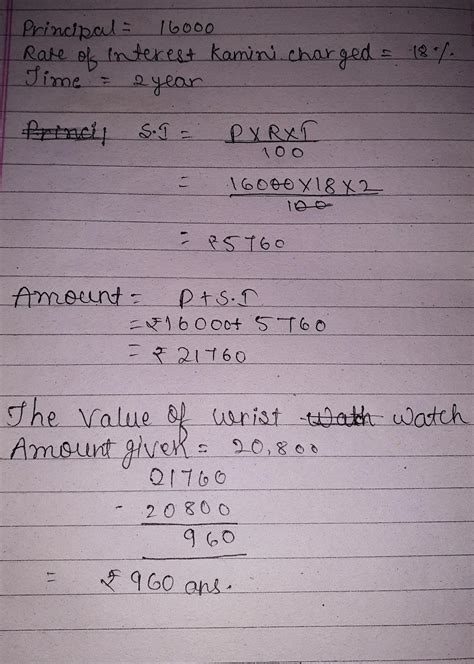 Principal = 16000
Rate of Interest Kamini charged = 18%.
Time = 2 year
Princi, S.I = P×R×T
100
= 16000×18×2
100
= ₹5760
Amount = P+S.I
= ₹16000+ 5760
= ₹ 21760
The Value of wrist Wath Watch
Amount given = 20,800
21760
- 20800
960
= ₹960 ans.